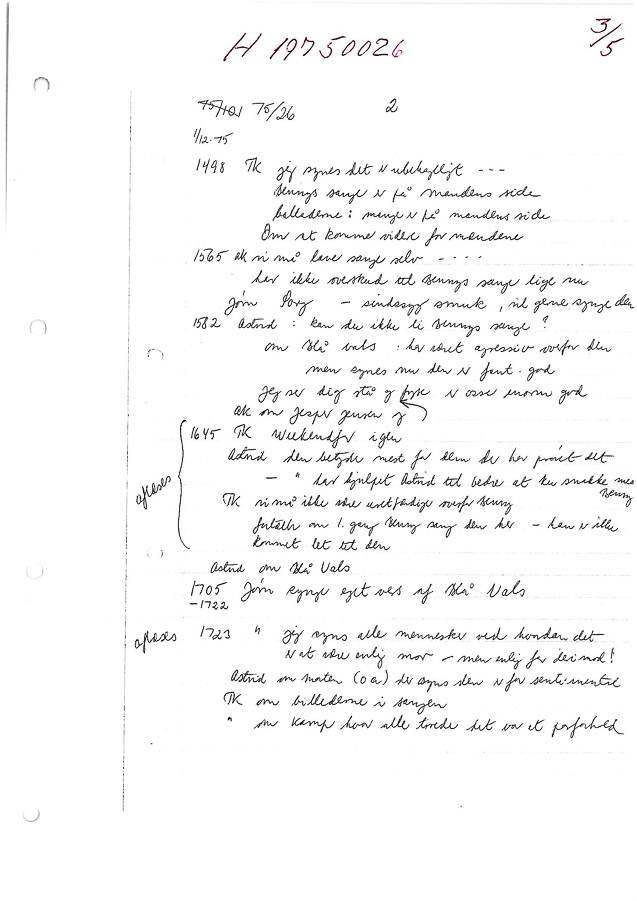 H 19750026
3/5
75/26
2
1/12-75
1498 TK jeg synes det er ubehageligt ---
Bennys sange er på mandens side
balladerne: mange er på mandens side
Om at komme videre for mændene
1565 ak vi må lave sange selv - - - -
har ikke overskud til Bennys sange lige nu
Jørn - sindssyg smuk, vil gerne synge den
1582 Astrid: kan du ikke li Bennys sange?
om Blå Vals: har været agressiv overfor den
men synes nu den er fant. god
jeg ser dig stå og fryse er osse enorm god
AK om Jesper Jensen
aflæses
1645 TK Weekendfar igen
Astrid den betyder mest for dem der har prøvet det
- " har hjulpet Astrid til bedre at ku snakke med Benny
TK vi må ikke være uretfærdige overfor Benny
fortæller om 1. gang Benny sang den her - han er ikke
kommet let til den
Astrid om Blå Vals
1705 Jørn synger eget vers af Blå Vals
-1722
aflæses 1723 " jeg syns alle mennesker ved hvordan det
er at være enlig mor - men enlig far derimod!
Astrid om Morten (o a) der synes den er for sentimental
TK om billederne i sangen
" om kamp hvor alle troede det var et parforhold